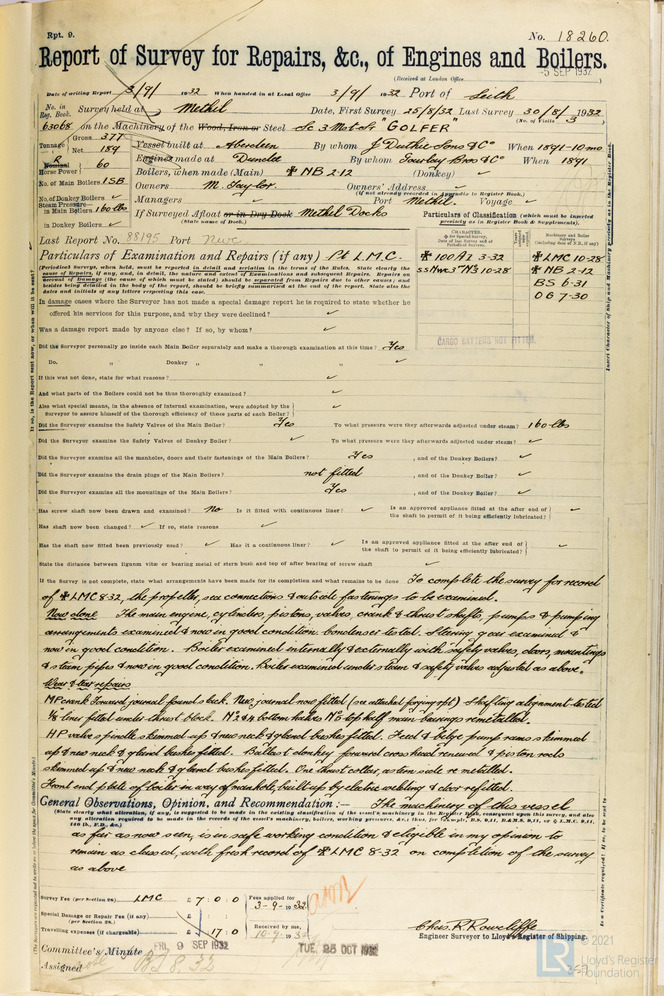 Rpt. 9.
No. 18260.
Report of Survey for Repairs, &c., of Engines and Boilers.
(Received at London Office
-5 SEP 1932
Date of writing Report 3/9/ 1932 When handed in at Local Office 3/9/ 1932 Port of Leith
No. in Reg. Book. Survey held at Methil Date, First Survey 25/8/32 Last Survey 30/8/ 1932
(No. of Visits 3)
63068 on the Machinery of the Wood, Iron or Steel Sc 3 Mst Sr "GOLFER"
Tonnage Gross 377 Net 189 Vessel built at Aberdeen By whom J Duthie Sons & Co When 1891-10 mo.
Engines made at Dundee By whom Gourlay Bros & Co When 1891
Nominal Horse Power 60 Boilers, when made (Main) ✠ NB 2-12 (Donkey) ✓
No. of Main Boilers 1SB Owners M. Taylor. Owners' Address ✓
(if not already recorded in Appendix to Register Book.)
No. of Donkey Boilers ✓ Managers ✓ Port Methil. Voyage ✓
Steam Pressure in Main Boilers 160 lbs If Surveyed Afloat or in Dry Dock Methil Docks
(State name of Dock.)
in Donkey Boilers ✓
Particulars of Classification (which must be inserted precisely as in Register Book & Supplements).
Last Report No. 88195 Port Nwc
Particulars of Examination and Repairs (if any) Pt L.M.C.
CHARACTER.
Machinery and Boiler Surveys (including date of N.B., if any)
✠ 100A1 3-32 ✠ LMC 10-28
SS Nwc 3rd No 3 10-28 ✠ NB 2-12
BS 6-31
OG 7-30
CARGO BATTENS NOT FITTED.
(Periodical Surveys, when held, must be reported in detail and seriatim in the terms of the Rules. State clearly the
cause of Repairs, if any, and, in detail, the nature and extent of Examinations and subsequent Repairs. Repairs on
account of Damage (the cause of which must be stated) should be separated from Repairs due to other causes; and
besides being detailed in the body of the report, should be briefly summarized at the end of the report. State also the
dates and initials of any letters respecting this case.)
In damage cases where the Surveyor has not made a special damage report he is required to state whether he
offered his services for this purpose, and why they were declined? ✓
Was a damage report made by anyone else? If so, by whom? ✓
Did the Surveyor personally go inside each Main Boiler separately and make a thorough examination at this time? Yes
Do. " Donkey " " " ✓
If this was not done, state for what reasons? ✓
And what parts of the Boilers could not be thus thoroughly examined? ✓
Also what special means, in the absence of internal examination, were adopted by the
Surveyor to assure himself of the thorough efficiency of those parts of each Boiler? ✓
Did the Surveyor examine the Safety Valves of the Main Boiler? Yes To what pressure were they afterwards adjusted under steam? 160 lbs
Did the Surveyor examine the Safety Valves of Donkey Boiler? ✓ To what pressure were they afterwards adjusted under steam? ✓
Did the Surveyor examine all the manholes, doors and their fastenings of the Main Boilers? Yes , and of the Donkey Boilers? ✓
Did the Surveyor examine the drain plugs of the Main Boilers? not fitted , and of the Donkey Boiler? ✓
Did the Surveyor examine all the mountings of the Main Boilers? Yes , and of the Donkey Boiler? ✓
Has screw shaft now been drawn and examined? No Is it fitted with continuous liner? ✓ Is an approved appliance fitted at the after end of the shaft to permit of it being efficiently lubricated? ✓
Has shaft now been changed? ✓ If so, state reasons ✓
Has the shaft now fitted been previously used? ✓ Has it a continuous liner? ✓ Is an approved appliance fitted at the after end of the shaft to permit of it being efficiently lubricated? ✓
State the distance between lignum vitæ or bearing metal of stern bush and top of after bearing of screw shaft ✓
If the Survey is not complete, state what arrangements have been made for its completion and what remains to be done To complete the survey for record
of ✠ LMC 8.32, the propeller, sea connections & outside fastenings to be examined.
Now done The main engine, cylinders, pistons, valves, crank & thrust shafts, pumps & pumping
arrangements examined & now in good condition. Condenser tested. Steering gear examined &
now in good condition. Boiler examined internally & externally with safety valves, doors, mountings
& steam pipes & now in good condition. Boiler examined under steam & safety valves adjusted as above.
Wear & tear repairs
MP crank forward journal found slack. New journal now fitted (see attached forging rpt) Shafting alignment tested
1/8 liner fitted under thrust block. bottom halves top half main bearings remetalled.
HP valve spindle skimmed up & new neck & gland bushes fitted. Feed & bilge pump rams skimmed
up & new neck & gland bushes fitted. Ballast donkey forward crosshead renewed & piston rods
skimmed up & new neck & gland bushes fitted. One thrust collar, astern side remetalled.
Front end plate of boiler in way of manhole, built up by electric welding & door refitted.
General Observations, Opinion, and Recommendation:— The machinery of this vessel
(State clearly what alteration, if any, is suggested to be made in the existing classification of the vessel's machinery in the Register Book, consequent upon this survey, and also
any alteration required to be made in the records of the vessel's machinery, boilers, working pressure, &c.; thus, for example, B.S. 9.11, B.&M.S. 9.11, or ✠ L.M.C. 9.11,
140 lb., F.D., &c.)
as far as now seen, is in safe working condition & eligible in my opinion to
remain as classed, with fresh record of ✠ LMC 8-32 on completion of the survey
as above
Survey Fee (per Section 28.) LMC £ 7 : 0 : 0 Fees applied for 3-9-1932
Special Damage or Repair Fee (if any) (per Section 28.) £ : :
Travelling expenses (if chargeable) £ : 17 : 0 Received by me, 10-9-1932
Chas. R. Rowcliffe
Engineer Surveyor to Lloyd's Register of Shipping.
Committee's Minute FRI. 9 SEP 1932 TUE. 25 OCT 1932
Assigned BS 8.32
© 2021
LR
Lloyd's Register
Foundation